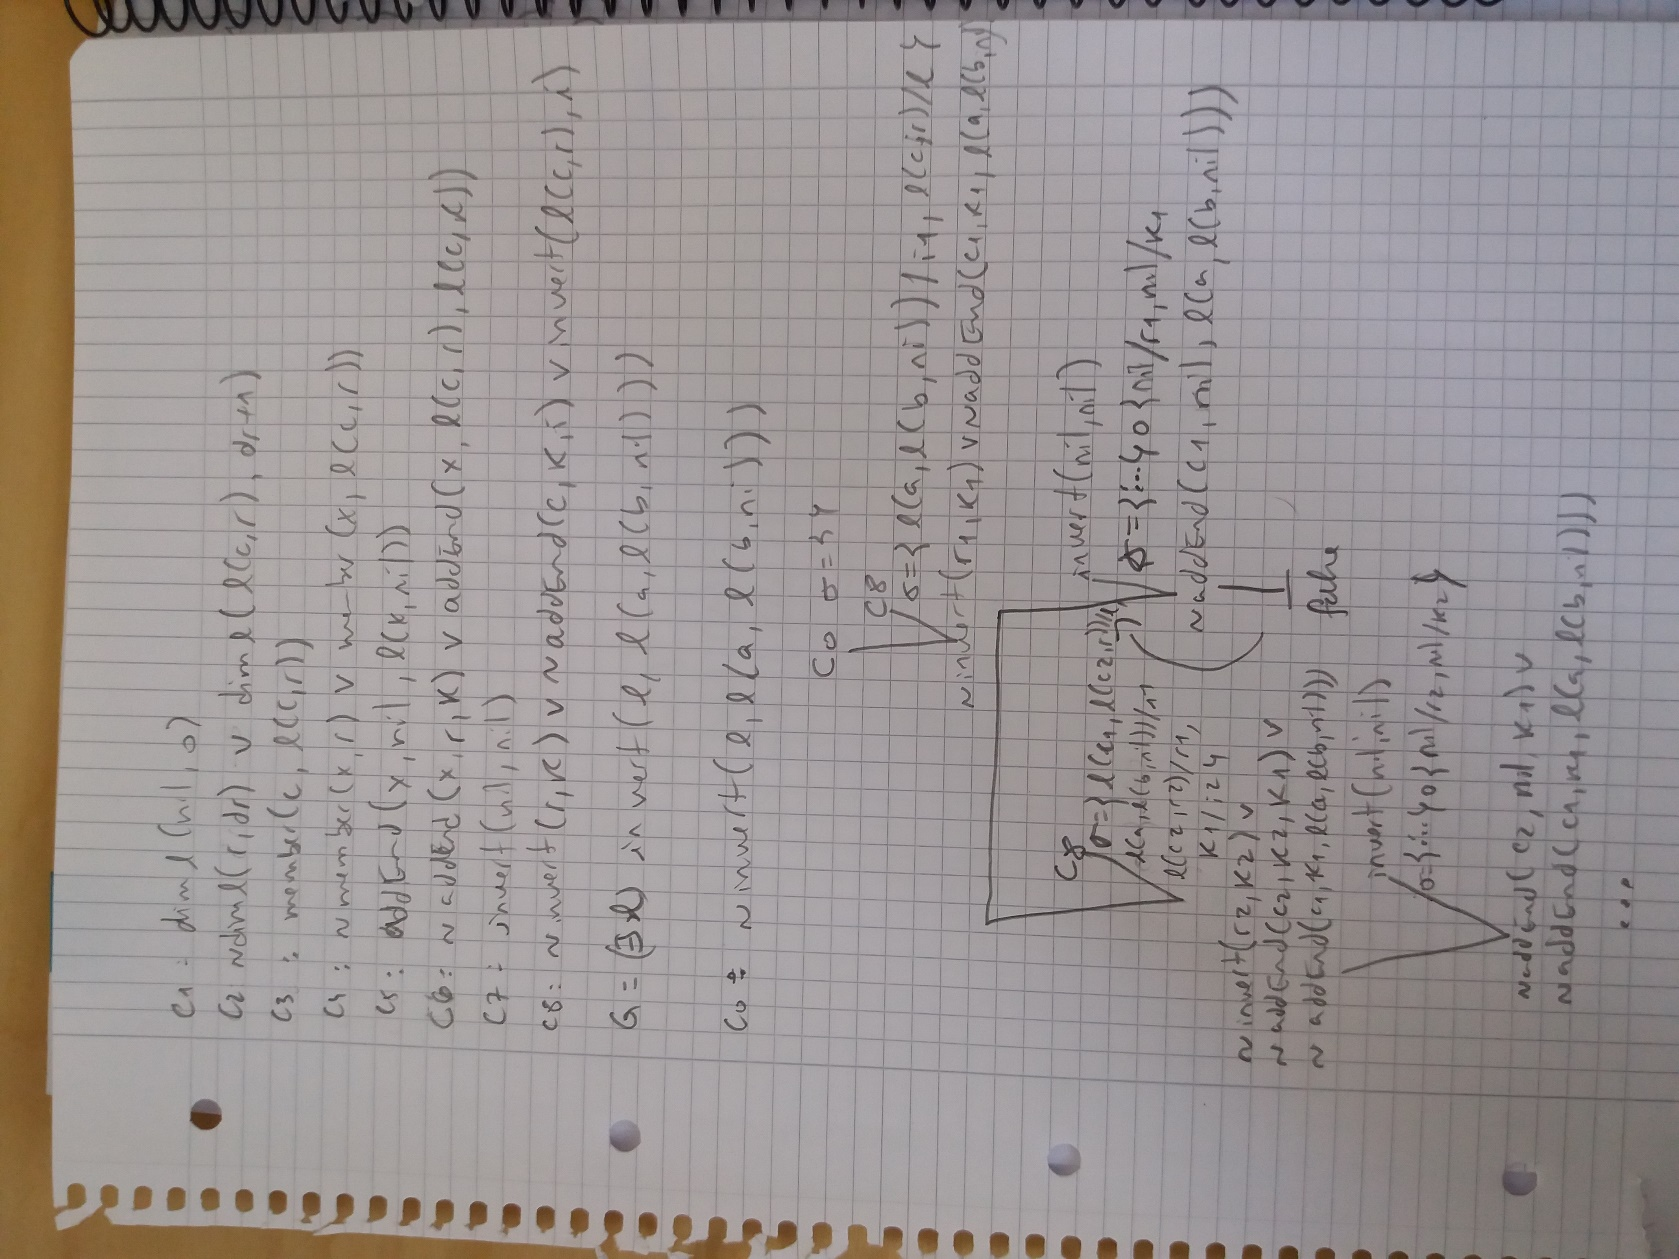 C1: dim l(nil, 0)
C2 ~dim l(r, dr) ∨ dim l(l(c,r), dr+1)
C3: member(c, l(c,r))
C4: ~member(x,r) ∨ member(x, l(c,r))
C5: addEnd(x, nil, l(x, nil))
C6: ~addEnd(x,r,k) ∨ addEnd(x, l(c,r), l(c,k))
C7: invert(nil, nil)
C8: ~invert(r,k) ∨ ~addEnd(c,k,i) ∨ invert(l(c,r), i)
G = (∃l) invert(l, l(a, l(b, nil)))
C0: ~invert(l, l(a, l(b, nil)))
C0 σ={}
C8
σ={l(a, l(b, nil))/i1, l(c,r)/l}
~invert(r1,k1) ∨ ~addEnd(c1, k1, l(a, l(b, nil
C8
σ={l(c1, l(c2,r2))/l,
l(a, l(b, nil))/i1
l(c2, r2)/r1,
k1/i2}
invert(nil, nil)
σ={...}∘{nil/r1, nil/k1
~addEnd(c1, nil, l(a, l(b, nil)))
false
~invert(r2, k2) ∨
~addEnd(c2, k2, k1) ∨
~addEnd(c1, k1, l(a, l(b, nil)))
invert(nil, nil)
σ={...}∘{nil/r2, nil/k2}
~addEnd(c2, nil, k1) ∨
~addEnd(c1, k1, l(a, l(b, nil)))
...